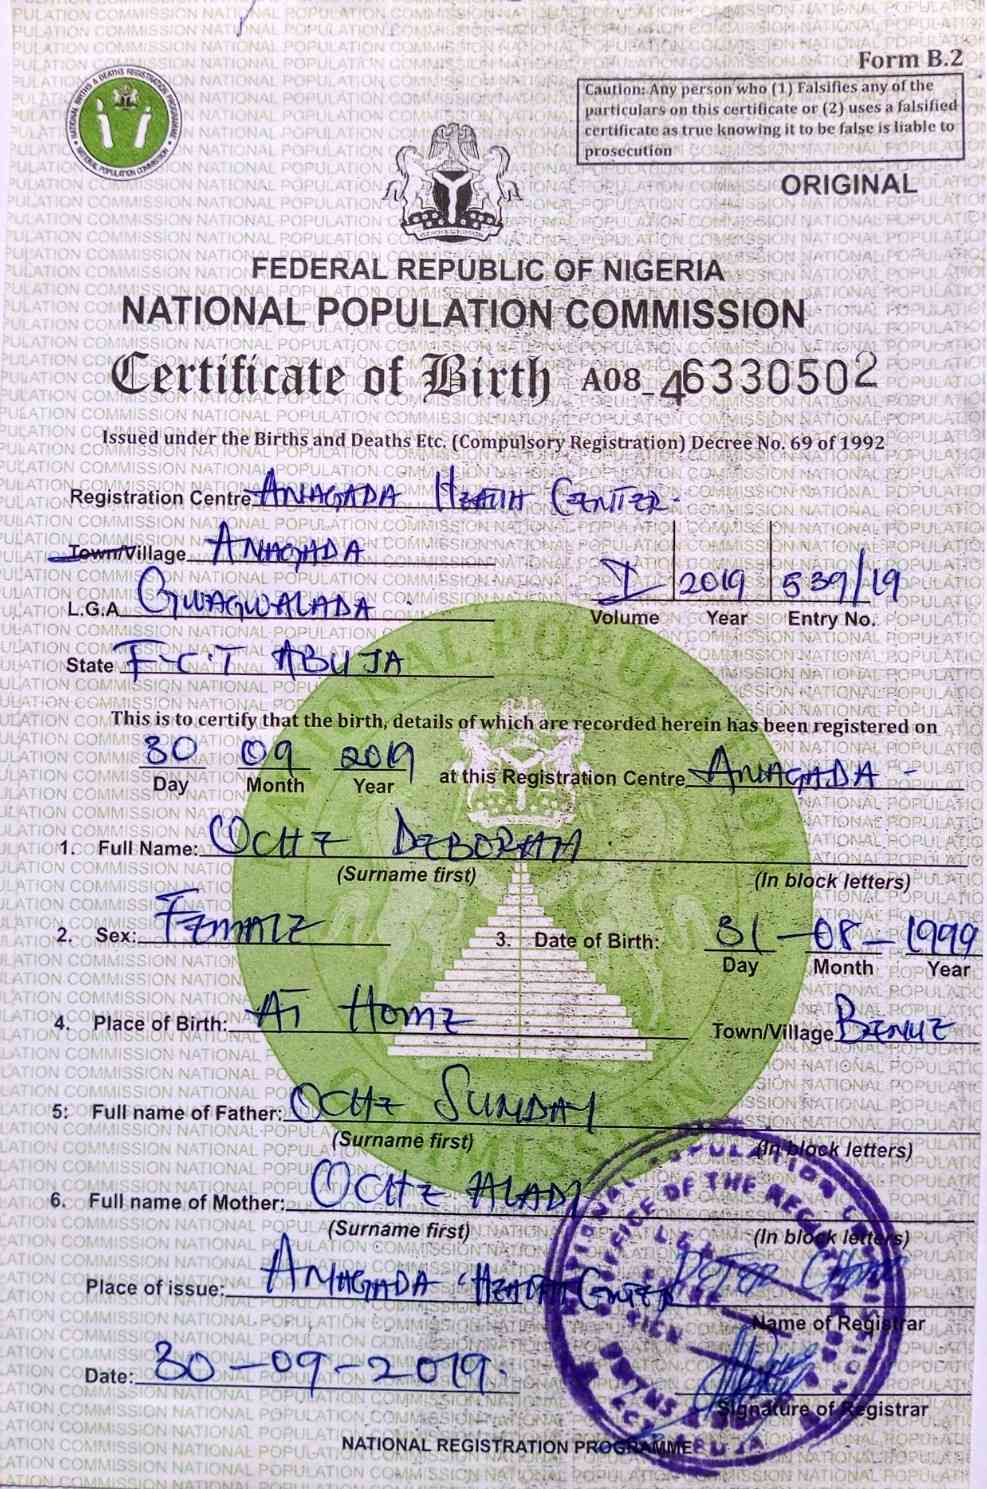 Form B.2
Caution: Any person who (1) Falsifies any of the
particulars on this certificate or (2) uses a falsified
certificate as true knowing it to be false is liable to
prosecution
NATIONAL BIRTHS & DEATHS REGISTRATION PROGRAMME
NATIONAL POPULATION COMMISSION
ORIGINAL
FEDERAL REPUBLIC OF NIGERIA
NATIONAL POPULATION COMMISSION
Certificate of Birth A08_46330502
Issued under the Births and Deaths Etc. (Compulsory Registration) Decree No. 69 of 1992
Registration Centre ANAGADA HEALTH CENTER
Town/Village ANAGADA
L.G.A GWAGWALADA
I 2019 539/19
Volume Year Entry No.
State F.C.T ABUJA
This is to certify that the birth, details of which are recorded herein has been registered on
30 09 2019 at this Registration Centre ANAGADA
Day Month Year
1. Full Name: OCHE DEBORAH
(Surname first) (In block letters)
2. Sex: FEMALE 3. Date of Birth: 31-08-1999
Day Month Year
4. Place of Birth: AT HOME Town/Village BENUE
5: Full name of Father: OCHE SUNDAY
(Surname first) (In block letters)
6. Full name of Mother: OCHE ALADI
(Surname first) (In block letters)
Place of issue: ANAGADA HEALTH CENTER PETER
Name of Registrar
Date: 30-09-2019.
Signature of Registrar
NATIONAL REGISTRATION PROGRAMME